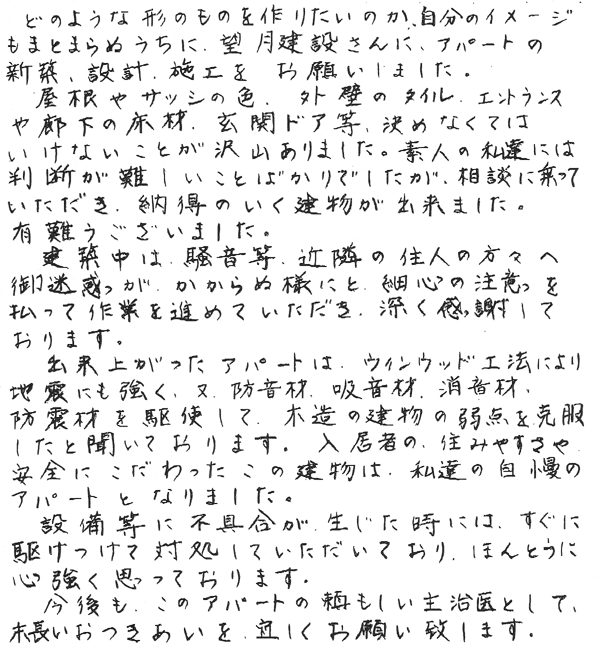 どのような形のものを作りたいのか、自分のイメージ
もまとまらぬうちに、望月建設さんに、アパートの
新築、設計、施工を お願いしました。
屋根やサッシの色、外壁のタイル、エントランス
や廊下の床材、玄関ドア等、決めなくては
いけないことが沢山ありました。素人の私達には
判断が難しいことばかりでしたが、相談に乗って
いただき、納得のいく建物が出来ました。
有難うございました。
建築中は、騒音等、近隣の住人の方々へ
御迷惑が、かからぬ様にと、細心の注意を
払って作業を進めていただき、深く感謝して
おります。
出来上がったアパートは、ウィンウッド工法により
地震にも強く、又、防音材、吸音材、消音材、
防震材を駆使して、木造の建物の弱点を克服
したと聞いております。入居者の、住みやすさや
安全にこだわったこの建物は、私達の自慢の
アパートとなりました。
設備等に不具合が、生じた時には、すぐに
駆けつけて対処していただいており、ほんとうに
心強く思っております。
今後も、このアパートの頼もしい主治医として、
末長いおつきあいを、宜しくお願い致します。